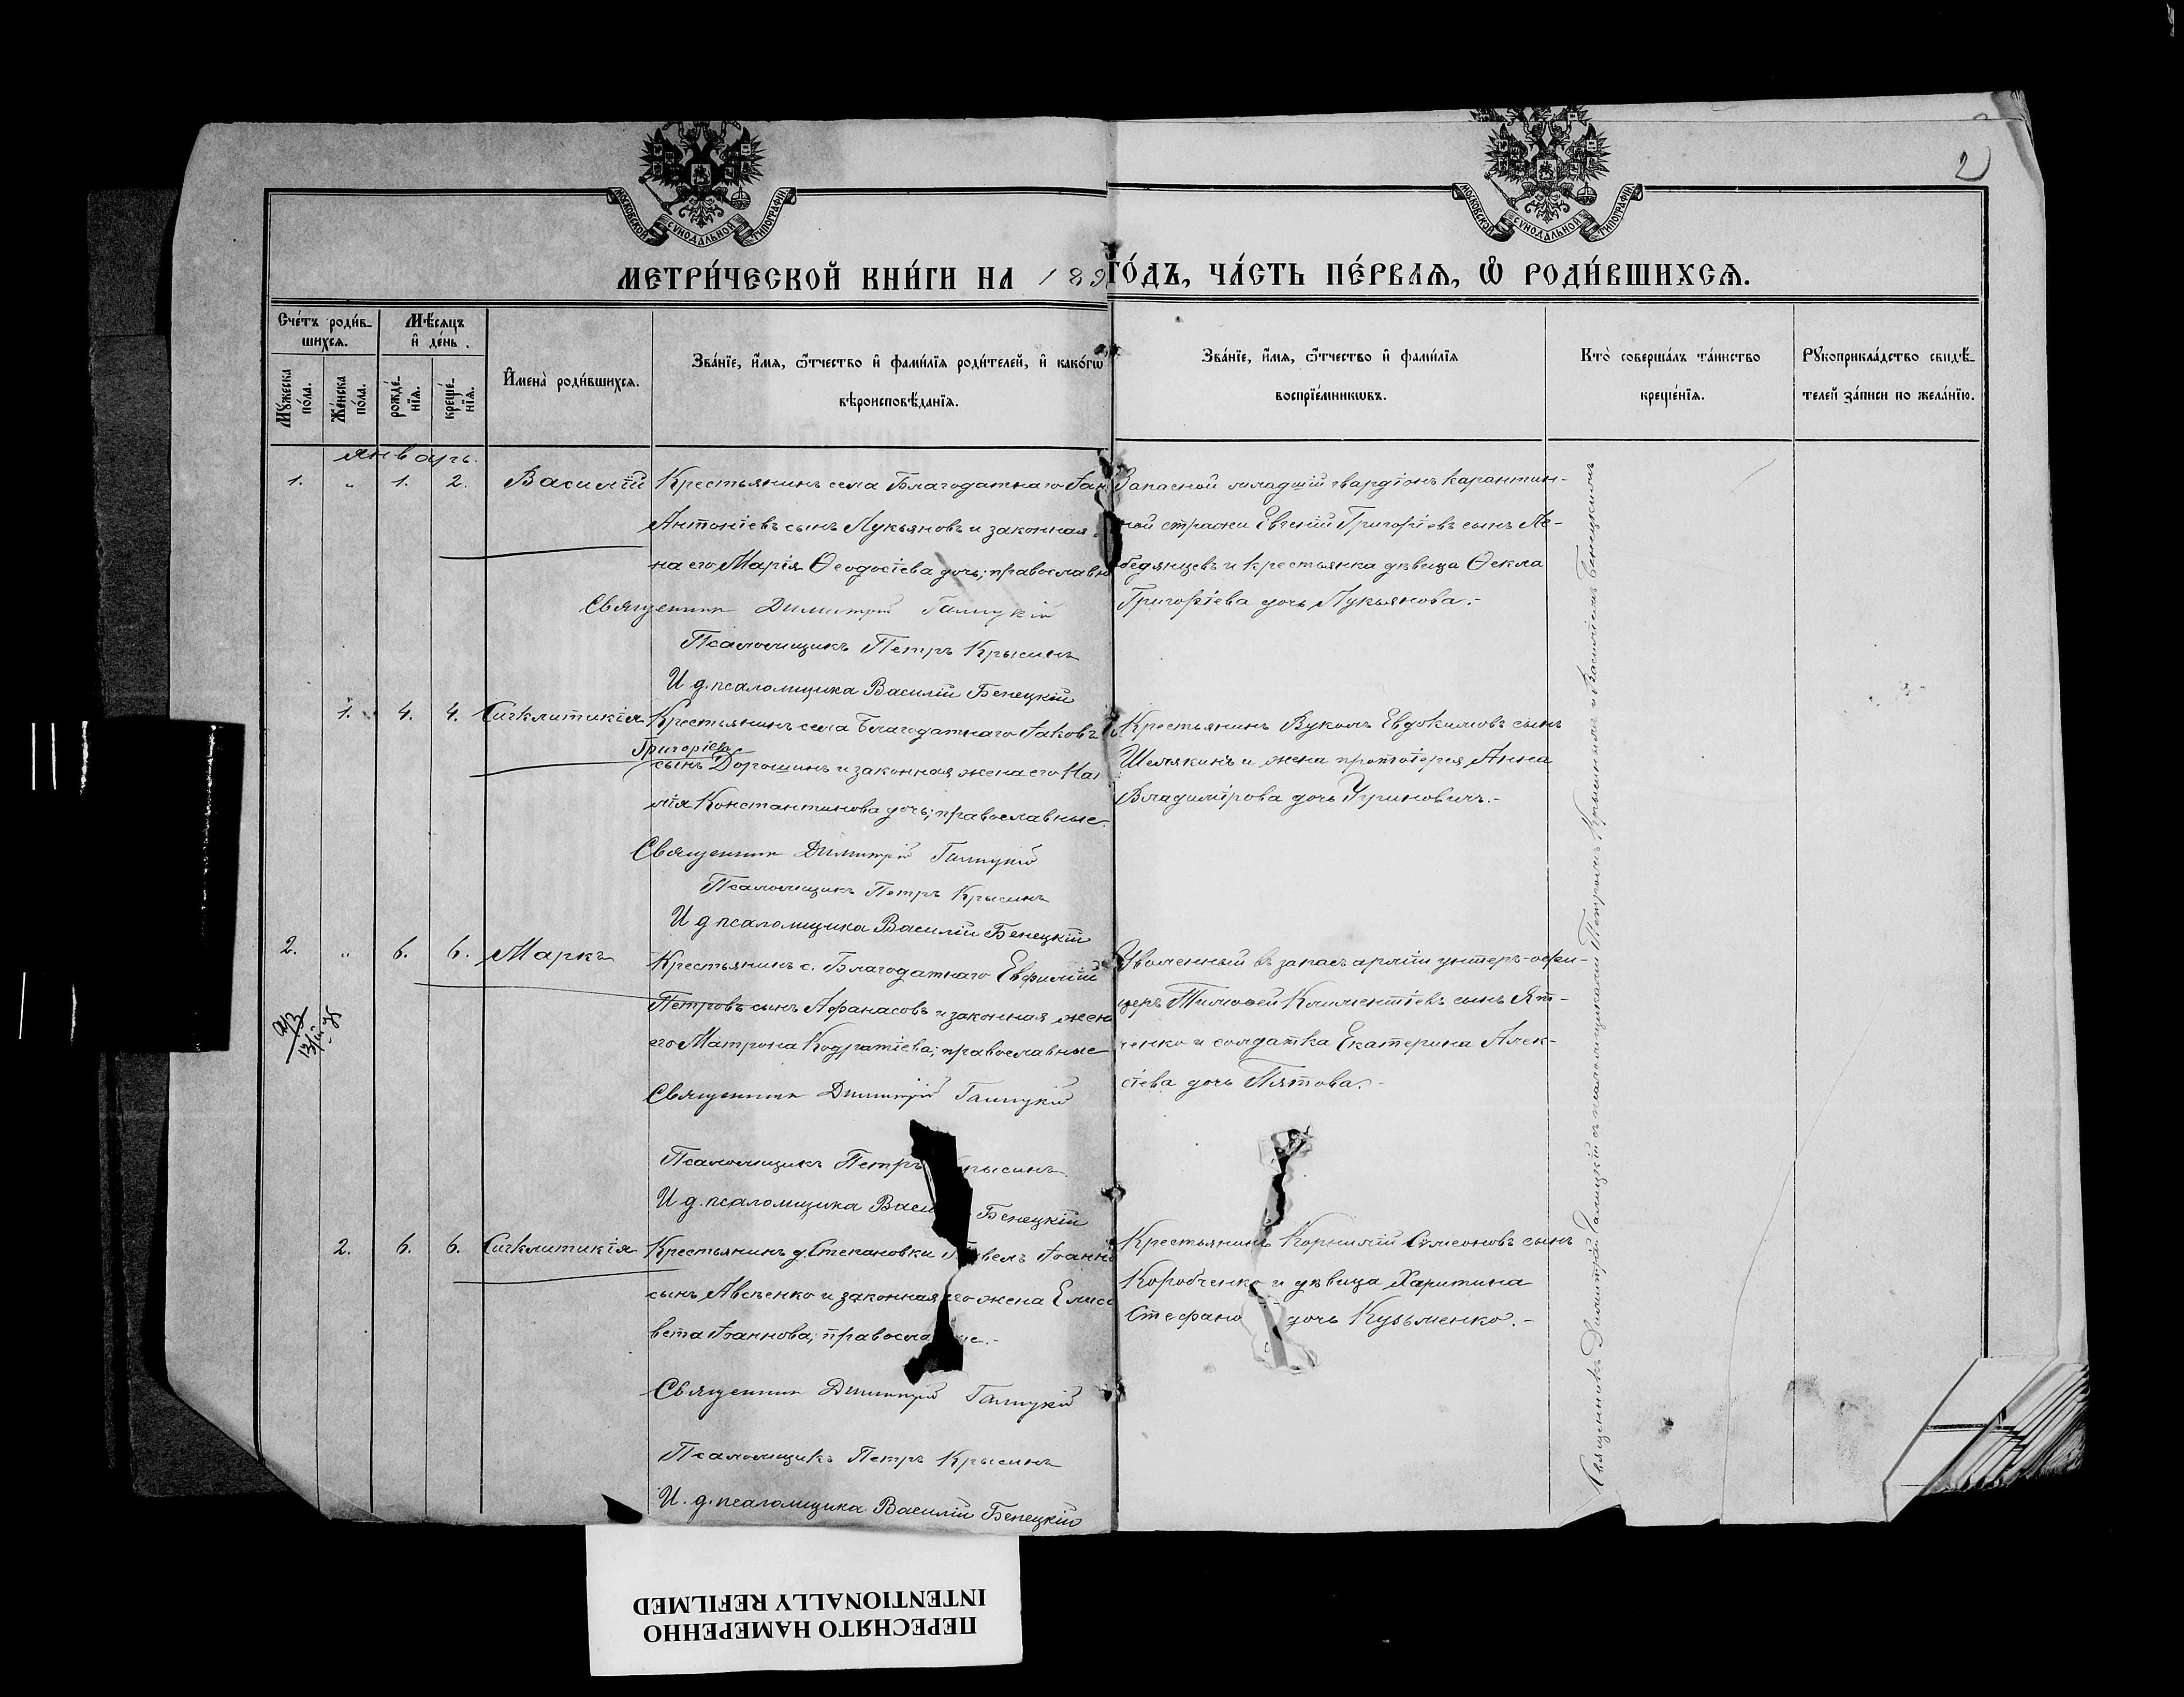 2
МОСКОВСКОЙ СУНОДАЛЬНОЙ ТИПОГРАФІИ
МОСКОВСКОЙ СУНОДАЛЬНОЙ ТИПОГРАФІИ
МЕТРИ́ЧЕСКОЙ КНИ́ГИ НА 189
ГО́ДЪ, ЧА́СТЬ ПЕ́РВАѦ, Ѡ РОДИ́ВШИХСѦ.
Сче́тъ роди́в-
шихсѧ.
Мѣ́сѧцъ
и҆ де́нь.
Мꙋ́жеска по́ла.
Же́нска по́ла.
рожде́-
нїѧ.
креще́-
нїѧ.
И҆мена̀ роди́вшихсѧ.
Зва́нїе, и҆́мѧ, ѻ҆́тчество и҆ фами́лїѧ роди́телей, и҆ како́гѡ
вѣроисповѣ́данїѧ.
Зва́нїе, и҆́мѧ, ѻ҆́тчество и҆ фами́лїѧ
воспрїе́мникѡвъ.
Кто̀ соверша́лъ та́инство
креще́нїѧ.
Рꙋкоприкла́дство свидѣ́-
телей за́писи по жела́нїю.
Январь.
1. " 1. 2. Василій
Крестьянинъ села Благодатнаго
Антоніевъ сынъ Лукьяновъ и законная
на его Марія Ѳеодосіева дочь; православн
Священник Димитрій Галицкій
Псаломщикъ Петръ Крысинъ
И д. псаломщика Василій Бенецкій
Запасной младшій гвардіонъ карантин-
ной стражи Евгеній Григоріевъ сынъ Ле-
бедянцевъ и крестьянка дѣвица Ѳекла
Григоріева дочь Лукьянова.-
1. 4. 4. Сигклитикія
Крестьянинъ села Благодатнаго Іаковъ
Григоріевъ
сынъ Дорошинъ и законная жена его На
лія Константинова дочь; православные
Священник Димитрій Галицкій
Псаломщикъ Петръ Крысинъ
И д псаломщика Василій Бенецкій
Крестьянинъ Вуколъ Евдокимовъ сынъ
Шелякинъ и жена протоіерея Анна
Владимірова дочь Чуриновичъ.-
2. " 6. 6. Маркъ
Крестьянинъ с. Благодатнаго Евфимій
Петровъ сынъ Афанасовъ и законная жена
его Матрона Кодратіева; православные
Священник Димитрій Галицкій
Псаломщикъ Петръ рысинъ
И д. псаломщика Васи Бенецкій
Уволенный въ запасъ арміи унтеръ-офи-
церъ Тимоѳей Климентіевъ сынъ Ят-
ченко и солдатка Екатерина Алек-
сіева дочь Пятова.-
2. 6. 6. Сигклитикія
Крестьянинъ д. Степановки П велъ Іоанно
сынъ Авсѣенко и законная его жена Елиса
вета Іоаннова; правосла ые.-
Священник Димитрій Галицкій
Псаломщикъ Петръ Крысинъ
И. д. псаломщика Василій Бенецкій
Крестьянинъ Корнилій Симеоновъ сынъ
Коробченко и дѣвица Харитина
Стефано дочь Кузьменко.-
Священникъ Димитрій Галицкій съ псаломщиками Петромъ Крысинымъ и Василіемъ Бенецкимъ
ПЕРЕСНЯТО НАМЕРЕННО
INTENTIONALLY REFILMED